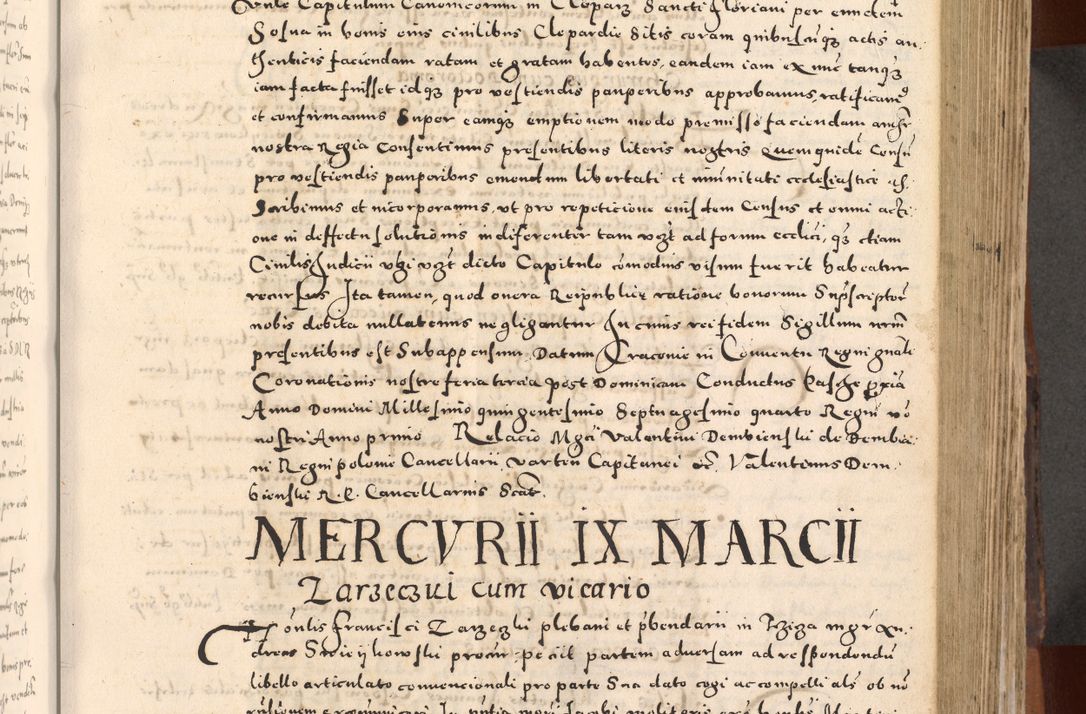 Capitulum Canonicorum in Cleparz Sancti Floriani per
Solua in bonis eius ciuilibus Clepardie Sitis coram quibuscuqz actis au
thenticis faciendam ratam et gratam habentes, eandem iam ex nuc tanqz
iam facta fuisset idqz pro vestiendis pauperibus approbamus, ratificam9
et confirmamus Super eamqz emptionem modo premisso faciendam
nostra Regia Consentimus presentibus literis nostris Quemquide Censu
pro vestiendis pauperibus emendum libertati et immunitati ecclesiastice as
Scribimus et incorporamus, vt pro repeticione eiusdem Census et omni acti
one in deffectu solutionis indiferenter tam vozt ad forum ecclici, qz etiam
Ciuilis Judicii vbi vozt dicto Capitulo comodius visum fuerit habeatur
recursus Ita tamen, quod onera Reipublice ratione bonorum Supscriptor
nobis debita nullatenus negligantur In cuius rei fidem Sigillum nrm
presentibus est Subappensum, Datum Cracouie in Conuentu Regni gnali
Coronationis nostre feria tercia post Dominicam Conductus Pasche
Anno Domini Millesimo quingentesimo Septuagesimo quarto Regni vo
nostri Anno primo Relacio Mgci Valentini Dembienski de Dembia
ni Regni polonie Cancellarii varten Capitanei etc. Valentinus Dem
bienski R. P. Cancellarius Scat.
MERCVRII IX MARCII
Zarzeczui cum vicario
oulis Francisci Zarzezki plebani et pbendarii in Rziza mgr An
dreas Strieijkowski procur: peciit partem aduersam ad respondendu
libello articulato conuencionali pro parte Sua dato cogi ac compelli als ob no